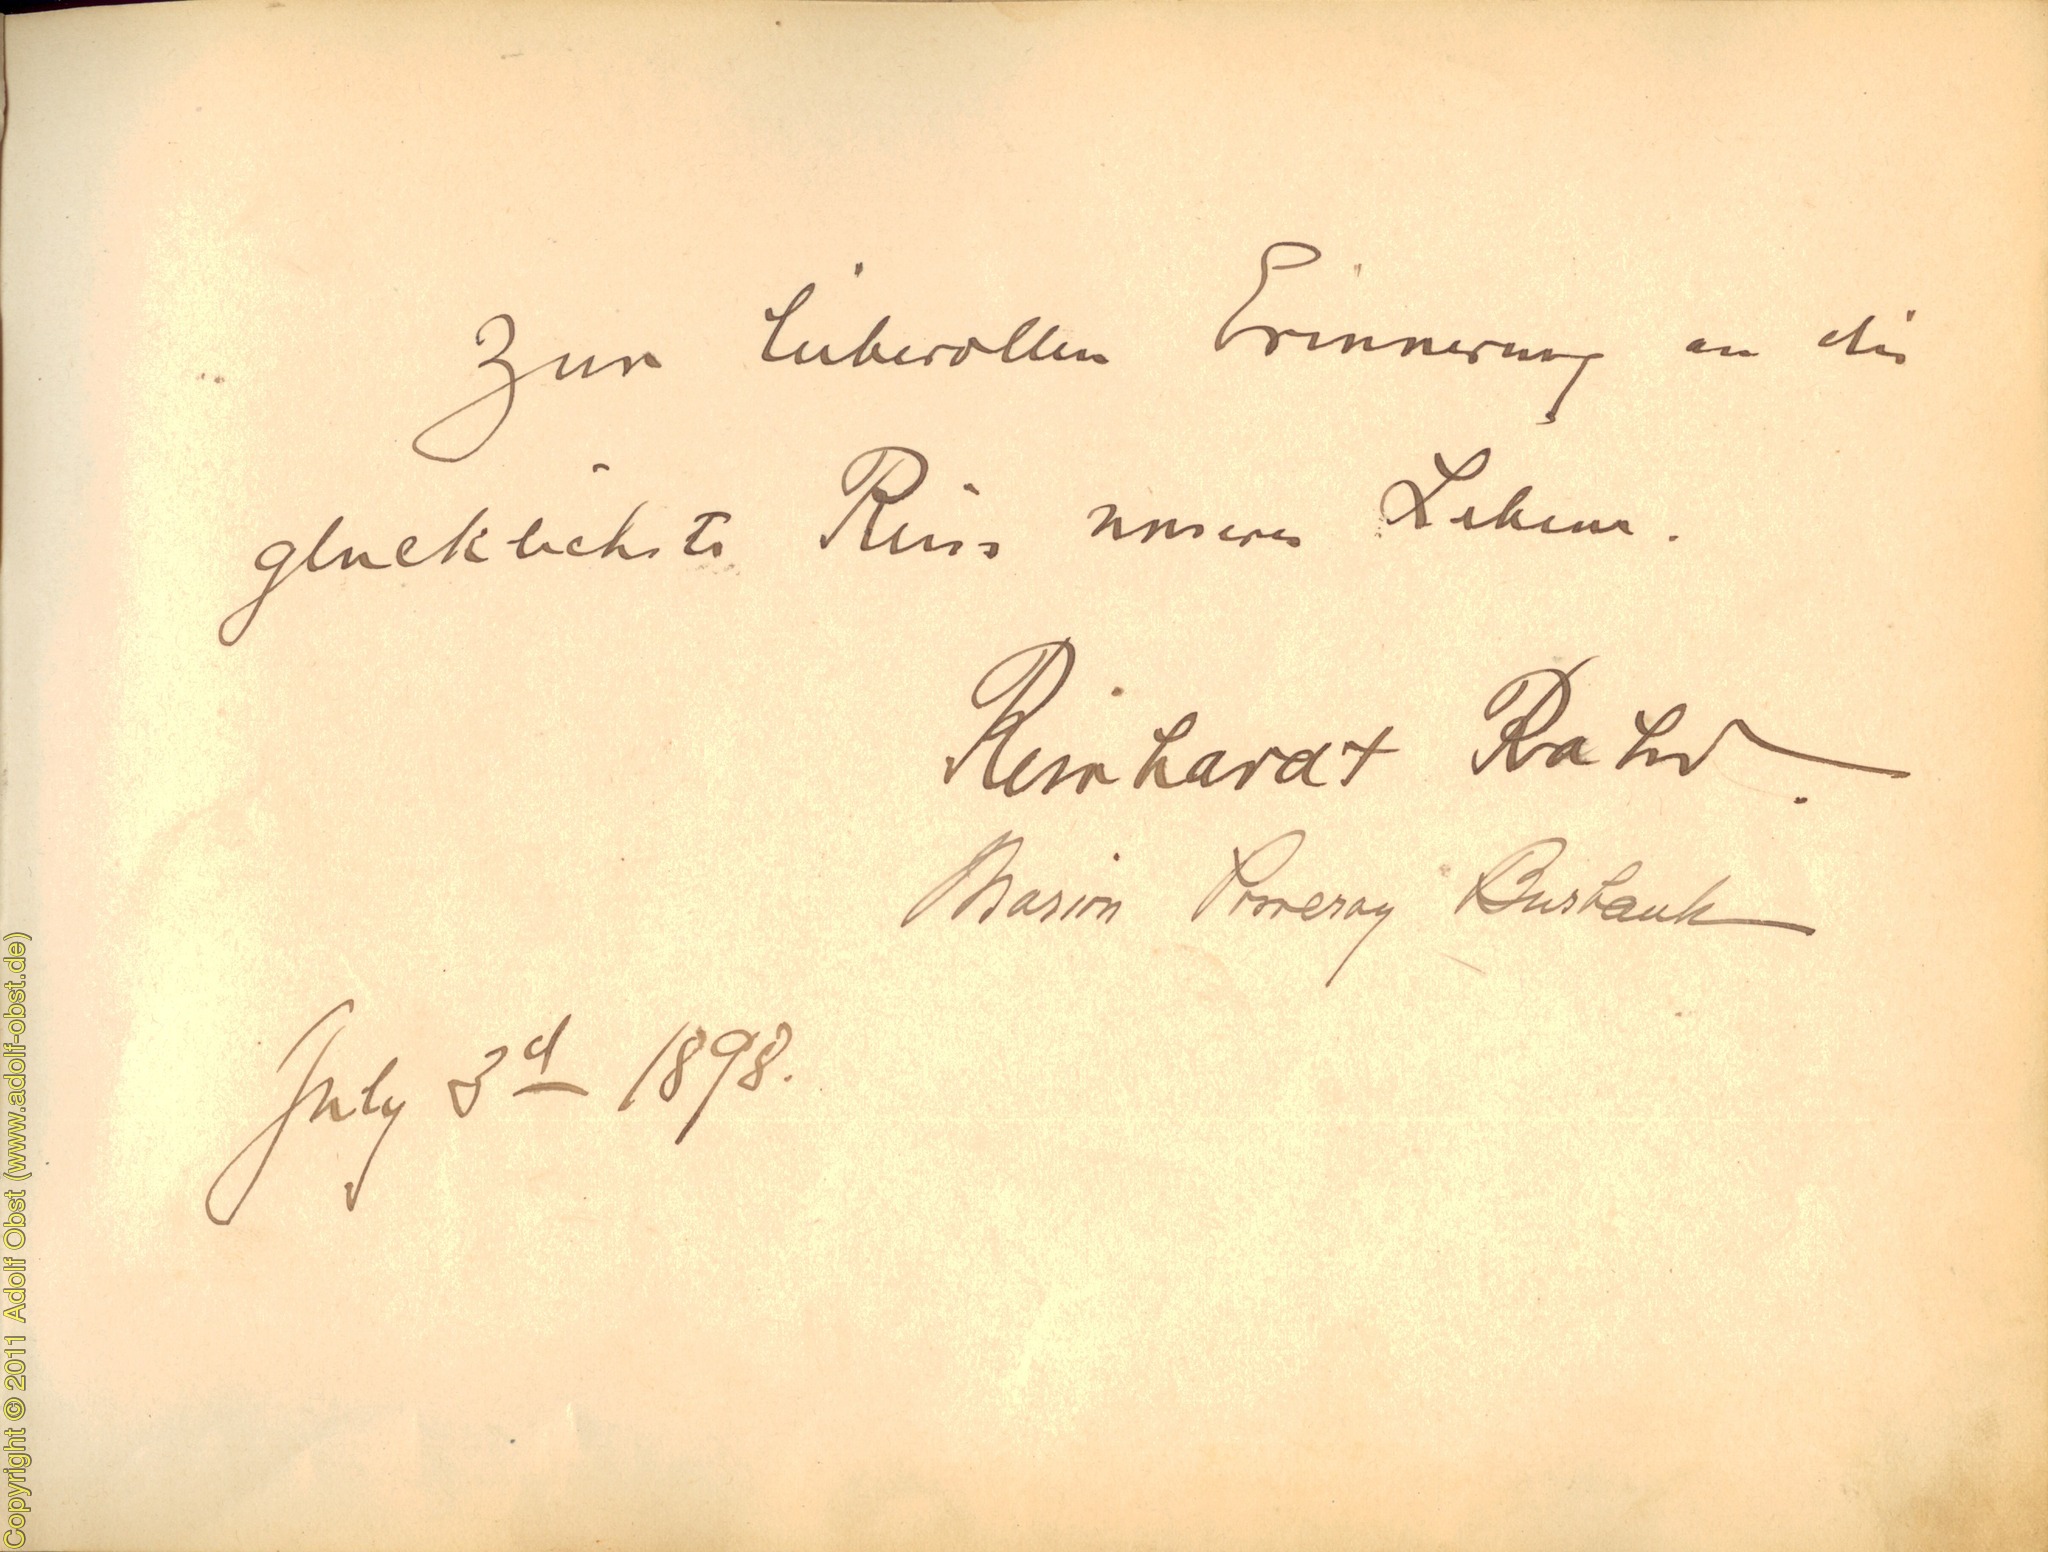 Zur liebevollen Erinnerung an die
glucklichste Reise unseres Lebens.
Reinhardt Rahr.
Marion Pomeroy Burbank
July 3d 1898.
Copyright © 2011 Adolf Obst (www.adolf-obst.de)